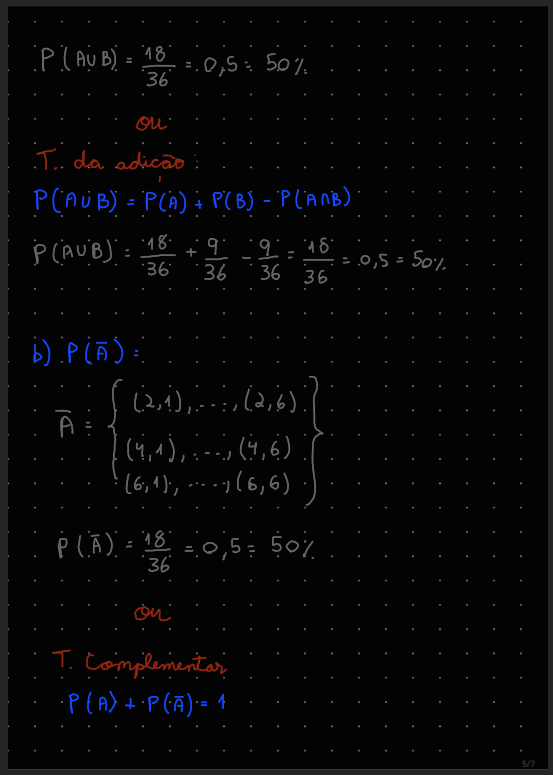 P(A∪B) = 18/36 = 0,5 = 50%.
ou
T. da adição
P(A∪B) = P(A) + P(B) - P(A∩B)
P(A∪B) = 18/36 + 9/36 - 9/36 = 18/36 = 0,5 = 50%.
b) P(Ā) =
Ā = { (2,1), ..., (2,6)
(4,1), ..., (4,6)
(6,1), ..., (6,6) }
P(Ā) = 18/36 = 0,5 = 50%
ou
T. Complementar
P(A) + P(Ā) = 1
5/7